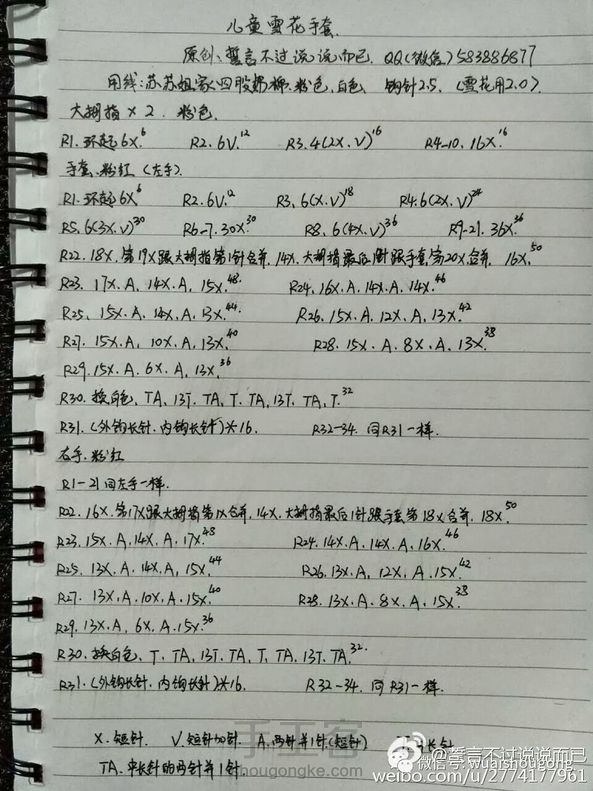 儿童雪花手套
原创:誓言不过说说而已. QQ(微信)583886877
用线:苏苏姐家四股奶棉.粉色,白色. 钩针2.5. (雪花用2.0).
大拇指×2. 粉色.
R1.环起6X.6 R2.6V.12 R3.4(2X.V)16 R4-10.16X.16
手套.粉红(左手).
R1.环起6X6 R2.6V.12 R3.6(X.V)18 R4.6(2X.V)24
R5.6(3X.V)30 R6-7.30X.30 R8.6(4X.V)36 R9-21.36X.36
R22.18X.第19X跟大拇指第1针合并,14X.大拇指最后1针跟手套第20X合并. 16X.50
R23. 17X.A, 14X.A, 15X.48 R24.16X.A, 14X.A, 14X.46
R25. 15X.A, 14X.A, 13X.44 R26.15X.A, 12X.A, 13X.42
R27. 15X.A, 10X.A, 13X.40 R28. 15X.A, 8X.A, 13X.38
R29.15X.A, 6X.A, 13X.36
R30.换白色, TA, 13T. TA, T. TA, 13T. TA, T.32
R31.(外钩长针.内钩长针)×16. R32-34.同R31一样.
右手.粉红
R1-21同左手一样.
R22. 16X.第17X跟大拇指第1X合并,14X.大拇指最后1针跟手套第18X合并. 18X.50
R23.15X.A.14X.A.17X.48 R24.14X.A.14X.A, 16X.46
R25. 13X.A.14X.A, 15X.44 R26.13X.A, 12X.A.15X.42
R27. 13X.A.10X.A.15X.40 R28. 13X.A.8X.A, 15X.38
R29.13X.A, 6X.A.15X.36
R30.换白色, T. TA, 13T. TA, T. TA, 13T. TA.32
R31.(外钩长针.内钩长针)×16. R32-34. 同R31一样.
X.短针. V.短针加针. A.两针并1针(短针) 长针
TA.中长针的两针并1针
手工客
hougongke.com
微信号: wuaishougong
@誓言不过说说而已
weibo.com/u/2774177961